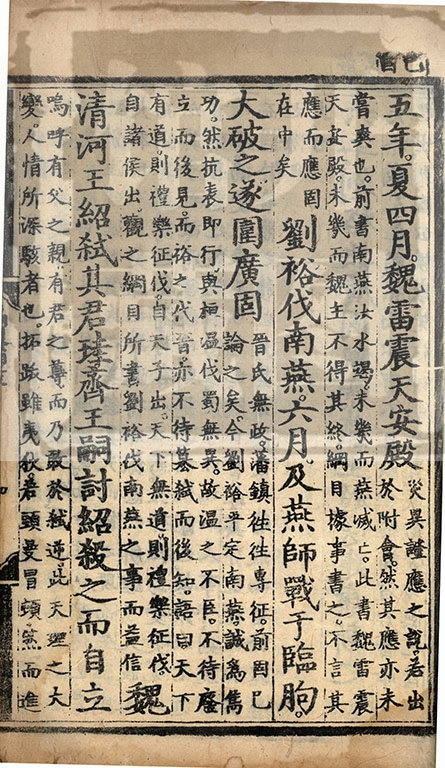 己酉
五年。夏四月。魏雷震天安殿
災異證應之説。若出
於附會。然其應亦未
嘗爽也。前書南燕汝水竭。未幾而燕滅亡。此書魏雷震
天安殿。未幾而魏主不得其終。綱目據事書之。不言其
應而應固
在中矣
劉裕伐南燕。六月。及燕師戰于臨朐。
大破之遂圍廣固
晉氏無政。藩鎮往往專征。前固已
論之矣。今劉裕平定南燕。誠爲雋
功。然抗表即行。與桓温伐蜀無異。故温之不臣。不待廢
立而後見。而裕之代晉亦不待篡弑而後知。語曰。天下
有道。則禮樂征伐。自天子出。天下無道。則禮樂征伐。
自諸侯出。觀之綱目所書劉裕伐南燕之事而益信
魏
清河王紹弑其君珪齊王嗣討紹殺之而自立
嗚呼有父之親。有君之尊而乃敢於弑逆。此天理之大
變。人情所深駭者也。拓跋雖夷狄。若頭曼冒頓然而進